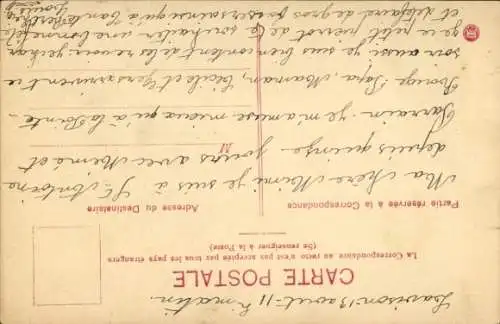 Lavison 13 avril - 11 matin.
CARTE POSTALE
La Correspondance au recto n'est pas acceptée par tous les pays étrangers
(Se renseigner à la Poste)
Partie réservée à la Correspondance
Adresse du Destinataire
Ma chère Mimi je suis à St Antoine
depuis quinze jours avec Mémé et
M
Parrain. je m'amuse mieux qu'à la
Papa, Maman, Cécile et arrivent ce
soir aussi je suis bien content de les revoir,
petit Pierrot de te souhaiter une bonne fête
et de faire de gros baisers ainsi qu'à